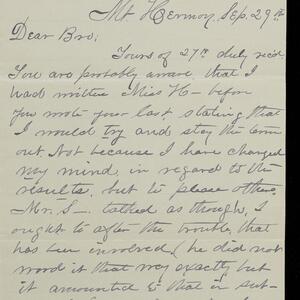 Mt Hermon, Sep. 29th
Dear Bro;
Yours of 27th duly rec'd.
You are probably aware that I
had written Miss H— before
you wrote your last, stating that
I would try and stay the term
out. Not because I have changed
my mind in regard to the
results, but to please others.
Mr. S— talked as though I
ought to after the trouble that
has been involved (he did not
word it that way exactly but
it amounted to that in sub-